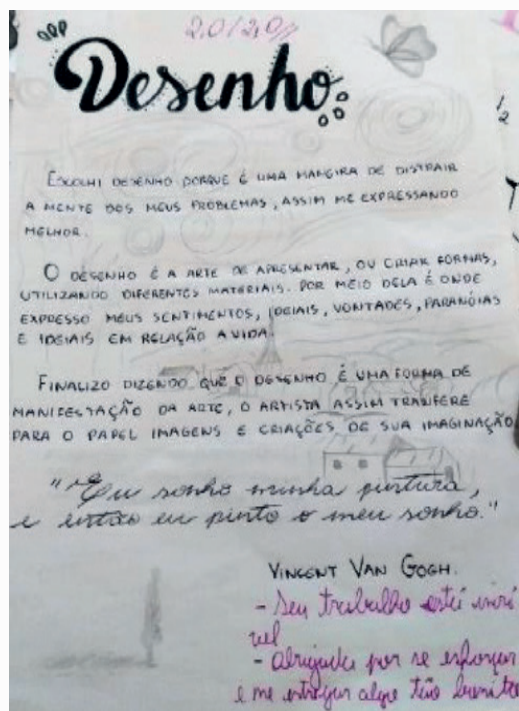 2.0/2.0
Desenho
Escolhi desenho porque é uma maneira de distrair
a mente dos meus problemas, assim me expressando
melhor.
O desenho é a arte de apresentar, ou criar formas,
utilizando diferentes materiais. Por meio dela é onde
expresso meus sentimentos, ideiais, vontades, paranóias
e ideiais em relação a vida.
Finalizo dizendo que o desenho é uma forma de
manifestação da arte, o artista assim tranfere
para o papel imagens e criações de sua imaginação
"Eu sonho minha pintura,
e então eu pinto o meu sonho."
Vincent Van Gogh.
- Seu trabalho está incrí
vel
- Obrigada por se esforçar
e me entregar algo tão bonito